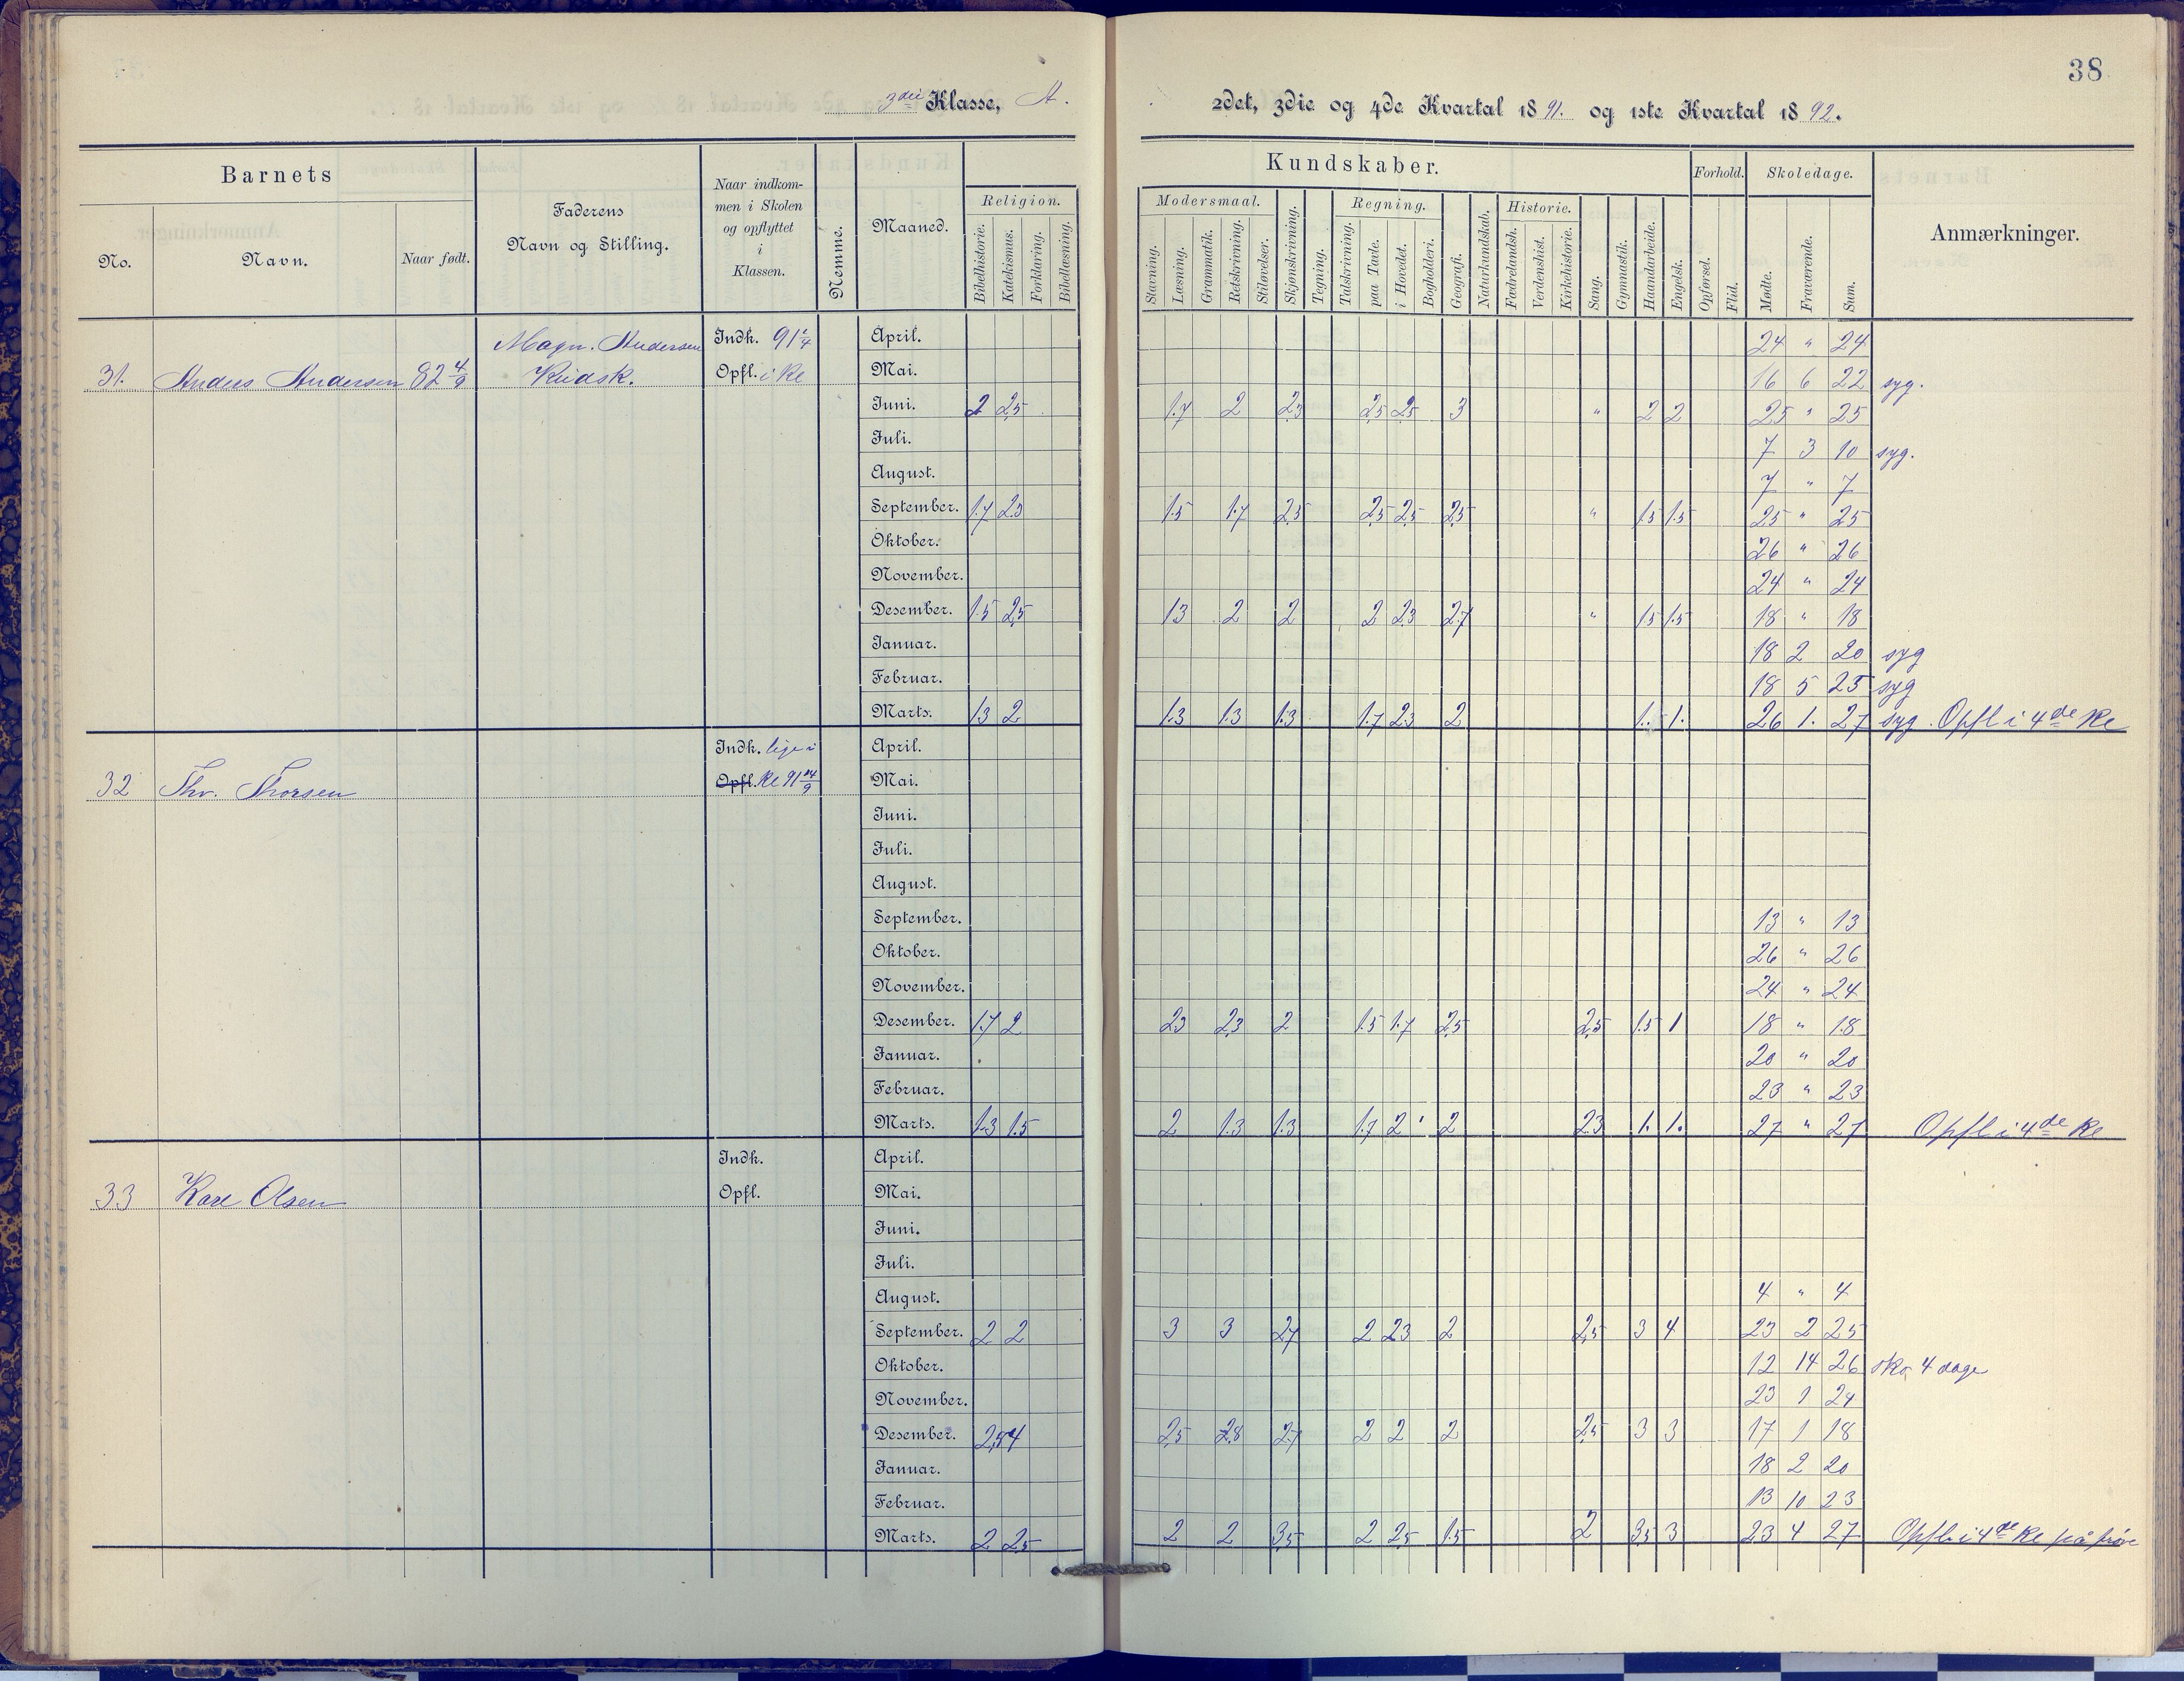 38
3die Klasse, A.
2det, 3die og 4de Kvartal 1891. og 1ste Kvartal 1892.
Barnets
No.
Navn.
Naar født.
Faderens
Navn og Stilling.
Naar indkom-
men i Skolen
og opflyttet
i
Klassen.
Nemme.
Maaned.
Kundskaber.
Religion.
Bibelhistorie.
Katekismus.
Forklaring.
Bibellæsning.
Modersmaal.
Stavning.
Læsning.
Grammatik.
Retskrivning.
Stiløvelser.
Skjønskrivning.
Tegning.
Regning.
Talskrivning.
paa Tavle.
i Hovedet.
Bogholderi.
Geografi.
Naturkundskab.
Historie.
Fædrelandsh.
Verdenshist.
Kirkehistorie.
Sang.
Gymnastik.
Haandarbeide.
Engelsk.
Forhold.
Opførsel.
Flid.
Skoledage.
Mødte.
Fraværende.
Sum.
Anmærkninger.
Magn. Andersen Indk. 91 1/4 April. 24 " 24
31. Anders Andersen 82 4/9 Kudsk. Opfl. i Kl Mai. 16 6 22 syg.
Juni. 2 2,5 1.7 2 2,3 2,5 2,5 3 " 2 2 25 " 25
Juli. 7 3 10 syg.
August. 7 " 7
September. 1.7 2.3 1.5 1.7 2,5 2,5 2,5 2,5 " 1.5 1.5 25 " 25
Oktober. 26 " 26
November. 24 " 24
Desember. 1.5 2,5 1.3 2 2 2 2.3 2.7 " 1.5 1.5 18 " 18
Januar. 18 2 20 syg
Februar. 18 5 23 syg
Marts. 1.3 2 1.3 1.3 1.3 1.7 2.3 2 1. 1. 26 1. 27 syg. Opfl i 4de Kl
Indk. lige i April.
32 Thv. Thorsen Opfl. Kl 91 14/9 Mai.
Juni.
Juli.
August.
September. 13 " 13
Oktober. 26 " 26
November. 24 " 24
Desember. 1.7 2 2.3 2,3 2 1.5 1.7 2,5 2,5 1.5 1 18 " 18
Januar. 20 " 20
Februar. 23 " 23
Marts. 1.3 1.5 2 1.3 1.3 1.7 2 2 2.3 1. 1. 27 " 27 Opfl i 4de Kl
Indk. April.
33 Karl Olsen Opfl. Mai.
Juni.
Juli.
August. 4 " 4
September. 2 2 3 3 2,7 2 2.3 2 2,5 3 4 23 2 25
Oktober. 12 14 26 4 dage
November. 23 1 24
Desember. 2,5 4 2,5 2,8 2,7 2 2 2 2,5 3 3 17 1 18
Januar. 18 2 20
Februar. 13 10 23
Marts. 2 2,5 2 2 3,5 2 2,5 1.5 2 3,5 3 23 4 27 Opfl i 4de Kl på prøve